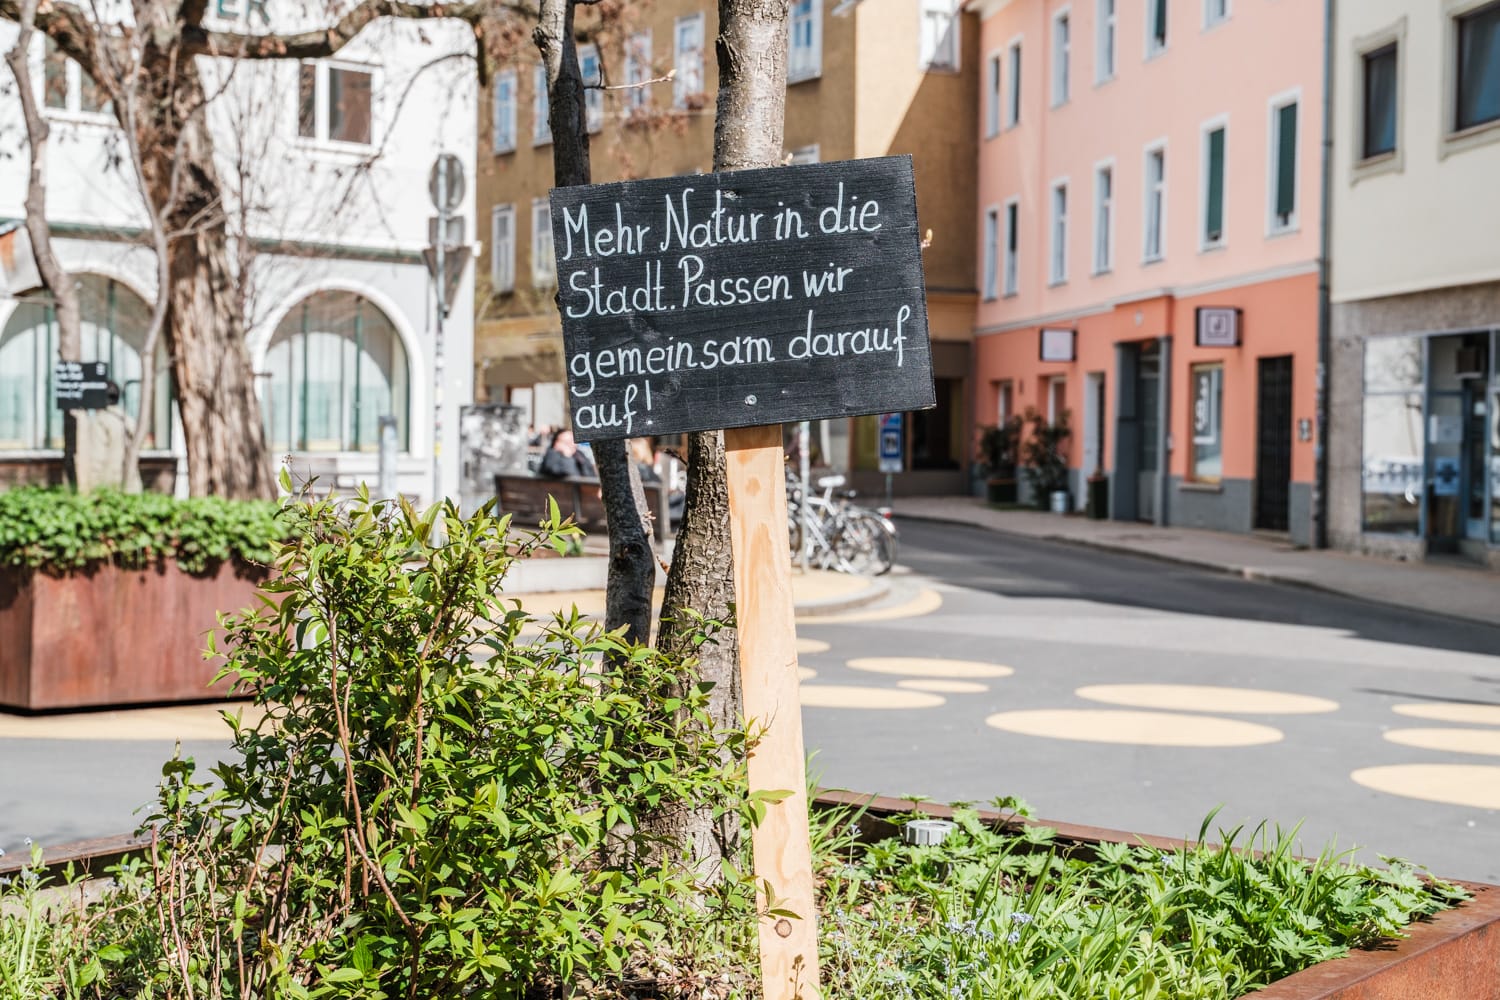 Mehr Natur in die
Stadt. Passen wir
gemeinsam darauf
auf!